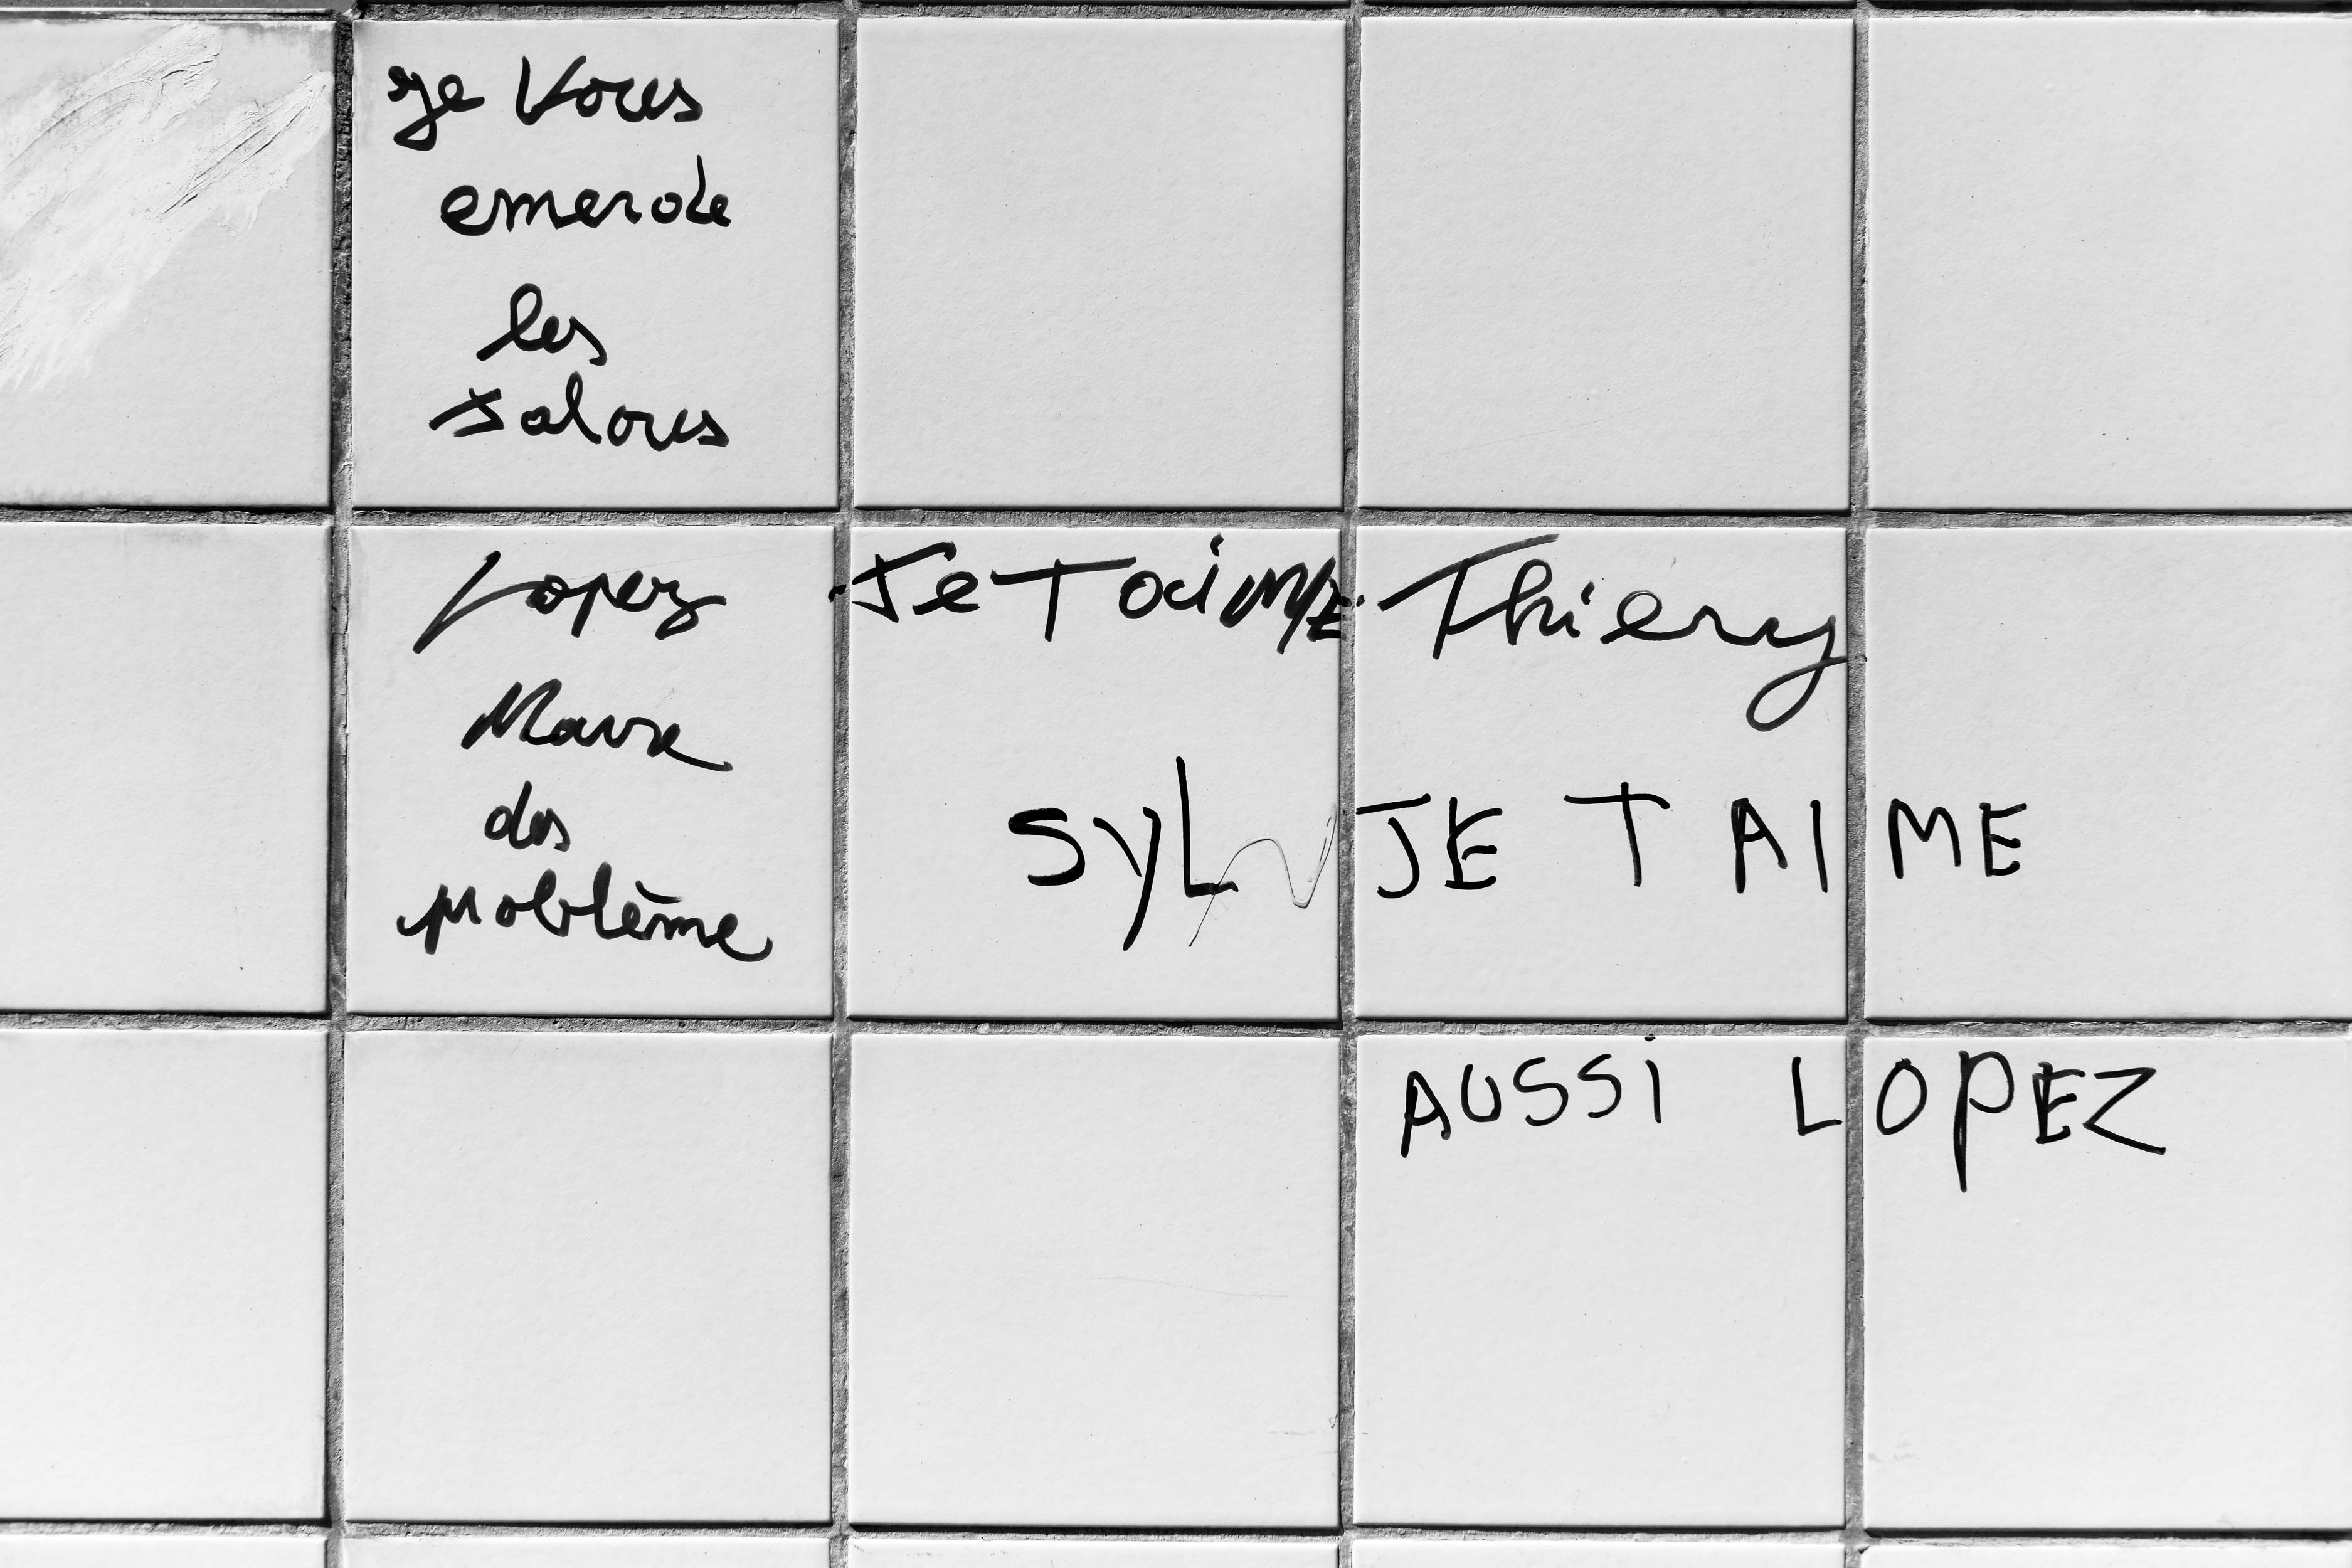 Je Vous
emerde
les
jalous
Lopez
Mavre
des
problème
Je T aime Thiery
SYL JE T AIME
AUSSI LOPEZ